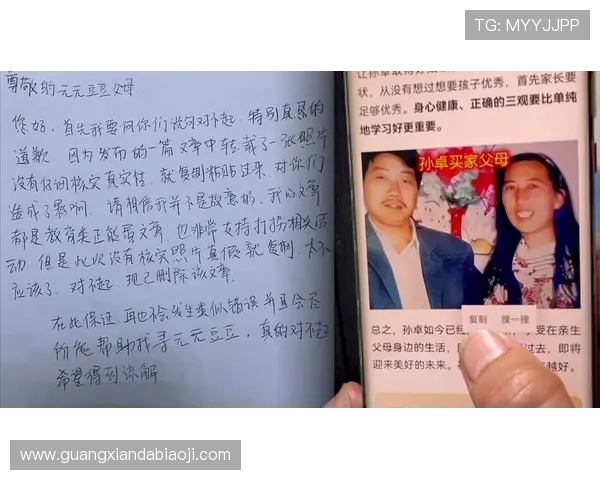 TG: MYYJJPP
尊敬的元元豆豆父母
您好,首先我要向你们说句对不起,特别真恳的
道歉,因为发布的一篇文章中转载了一张照片
没有仔细核实真实性,就复制粘贴过来,对你们
造成了影响,请相信我并不是故意的,我的文章
都是教育类正能量文章,也非常支持打拐相关活
动,但是此次没有核实照片真假就复制,太不
应该了,对不起,现已删除该文章.
在此保证,再也不会发生类似错误并且会尽
所能帮助找寻元元豆豆,真的对不起
希望得到谅解
状,从没有想过想要孩子优秀,首先家长要
足够优秀。身心健康、正确的三观要比单纯
地学习好更重要。
孙卓买家父母
复制 搜一搜
总之,孙卓如今已经 享受在亲生
父母身边的生活, 过去,即将
迎来美好的未来。 越好。
www.guangxiandabiaoji.com